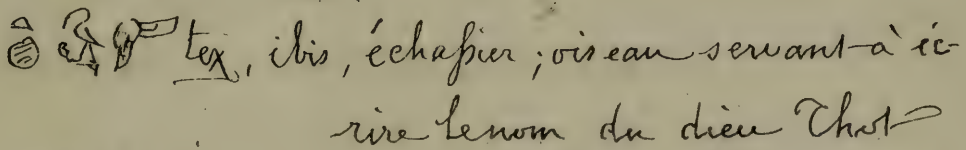 tex, ibis, échassier; oiseau servant à éc-
rire le nom du dieu Thot